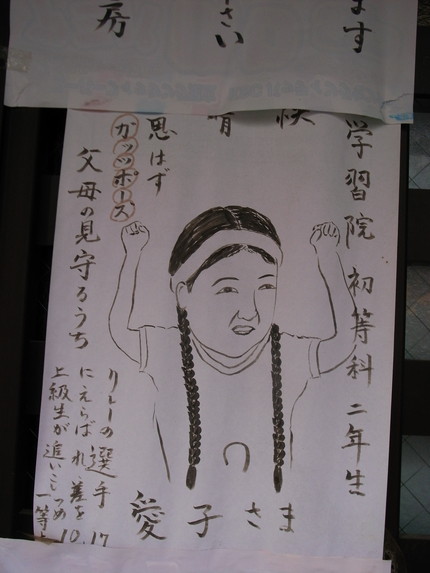 ます
さい
房
学習院 初等科 二年生
快
晴
思はず
ガッツポーズ
父母の見守るうち
リレーの選手
にえらばれ 差を
上級生が追いこしつめ
一等よ
10.17
愛子さま